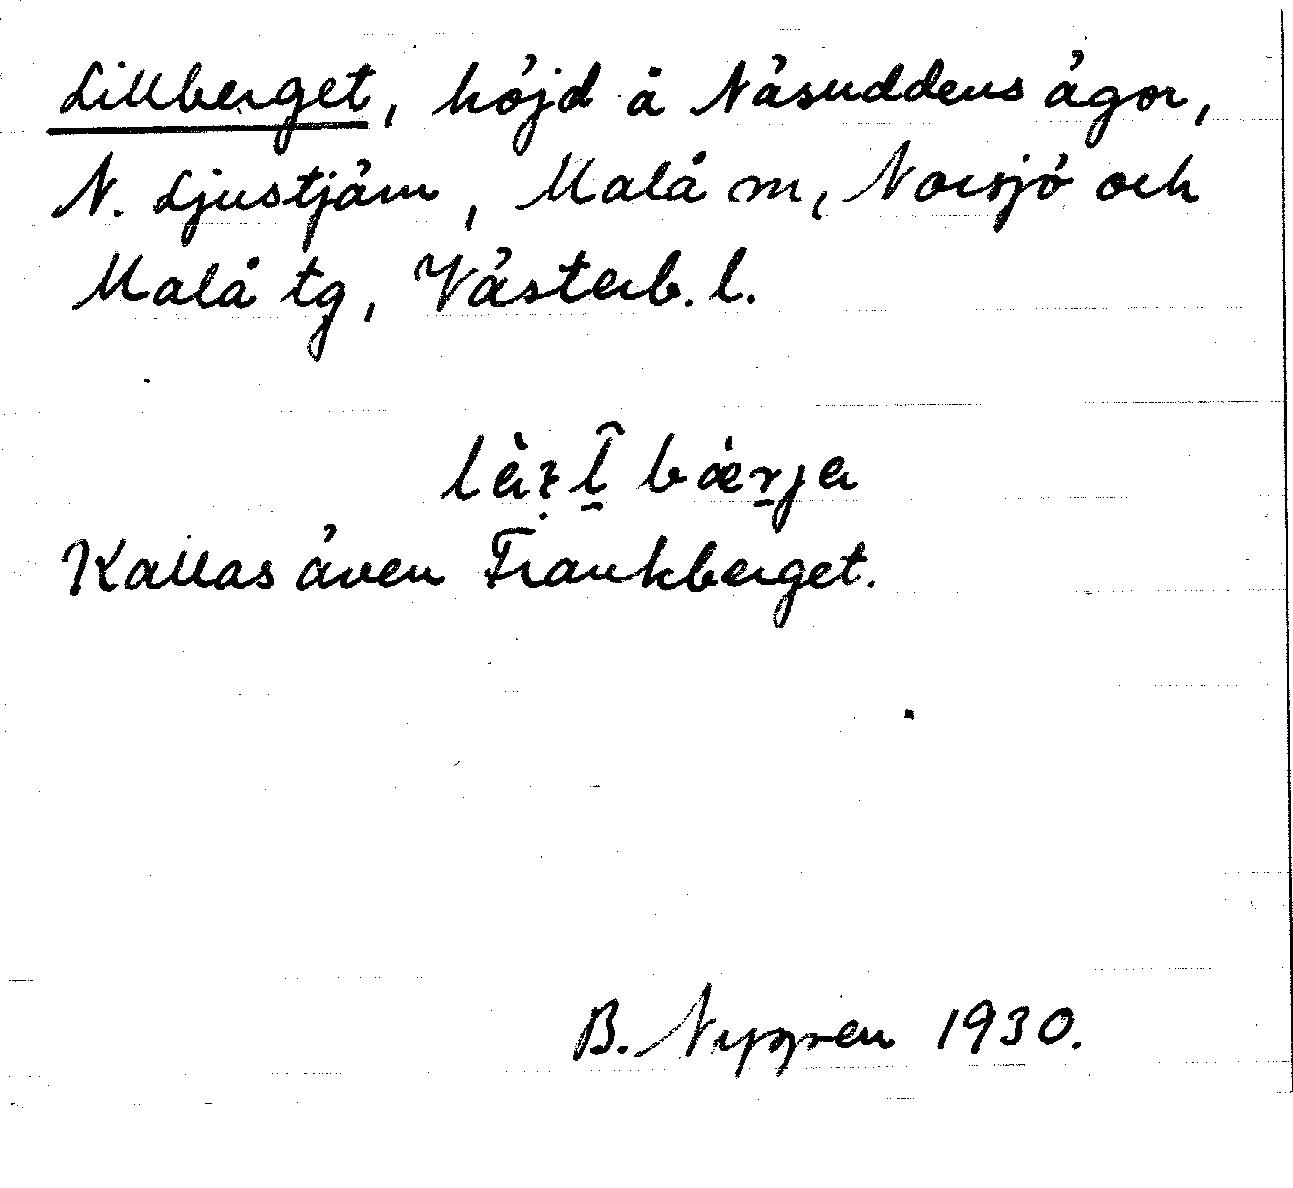 Lillberget, höjd å Näsuddens ägor,
N. Ljustjärn, Malå m, Norsjö och
Malå tg, Västerb. l.
Kallas även Frankberget.
B. Nygren 1930.